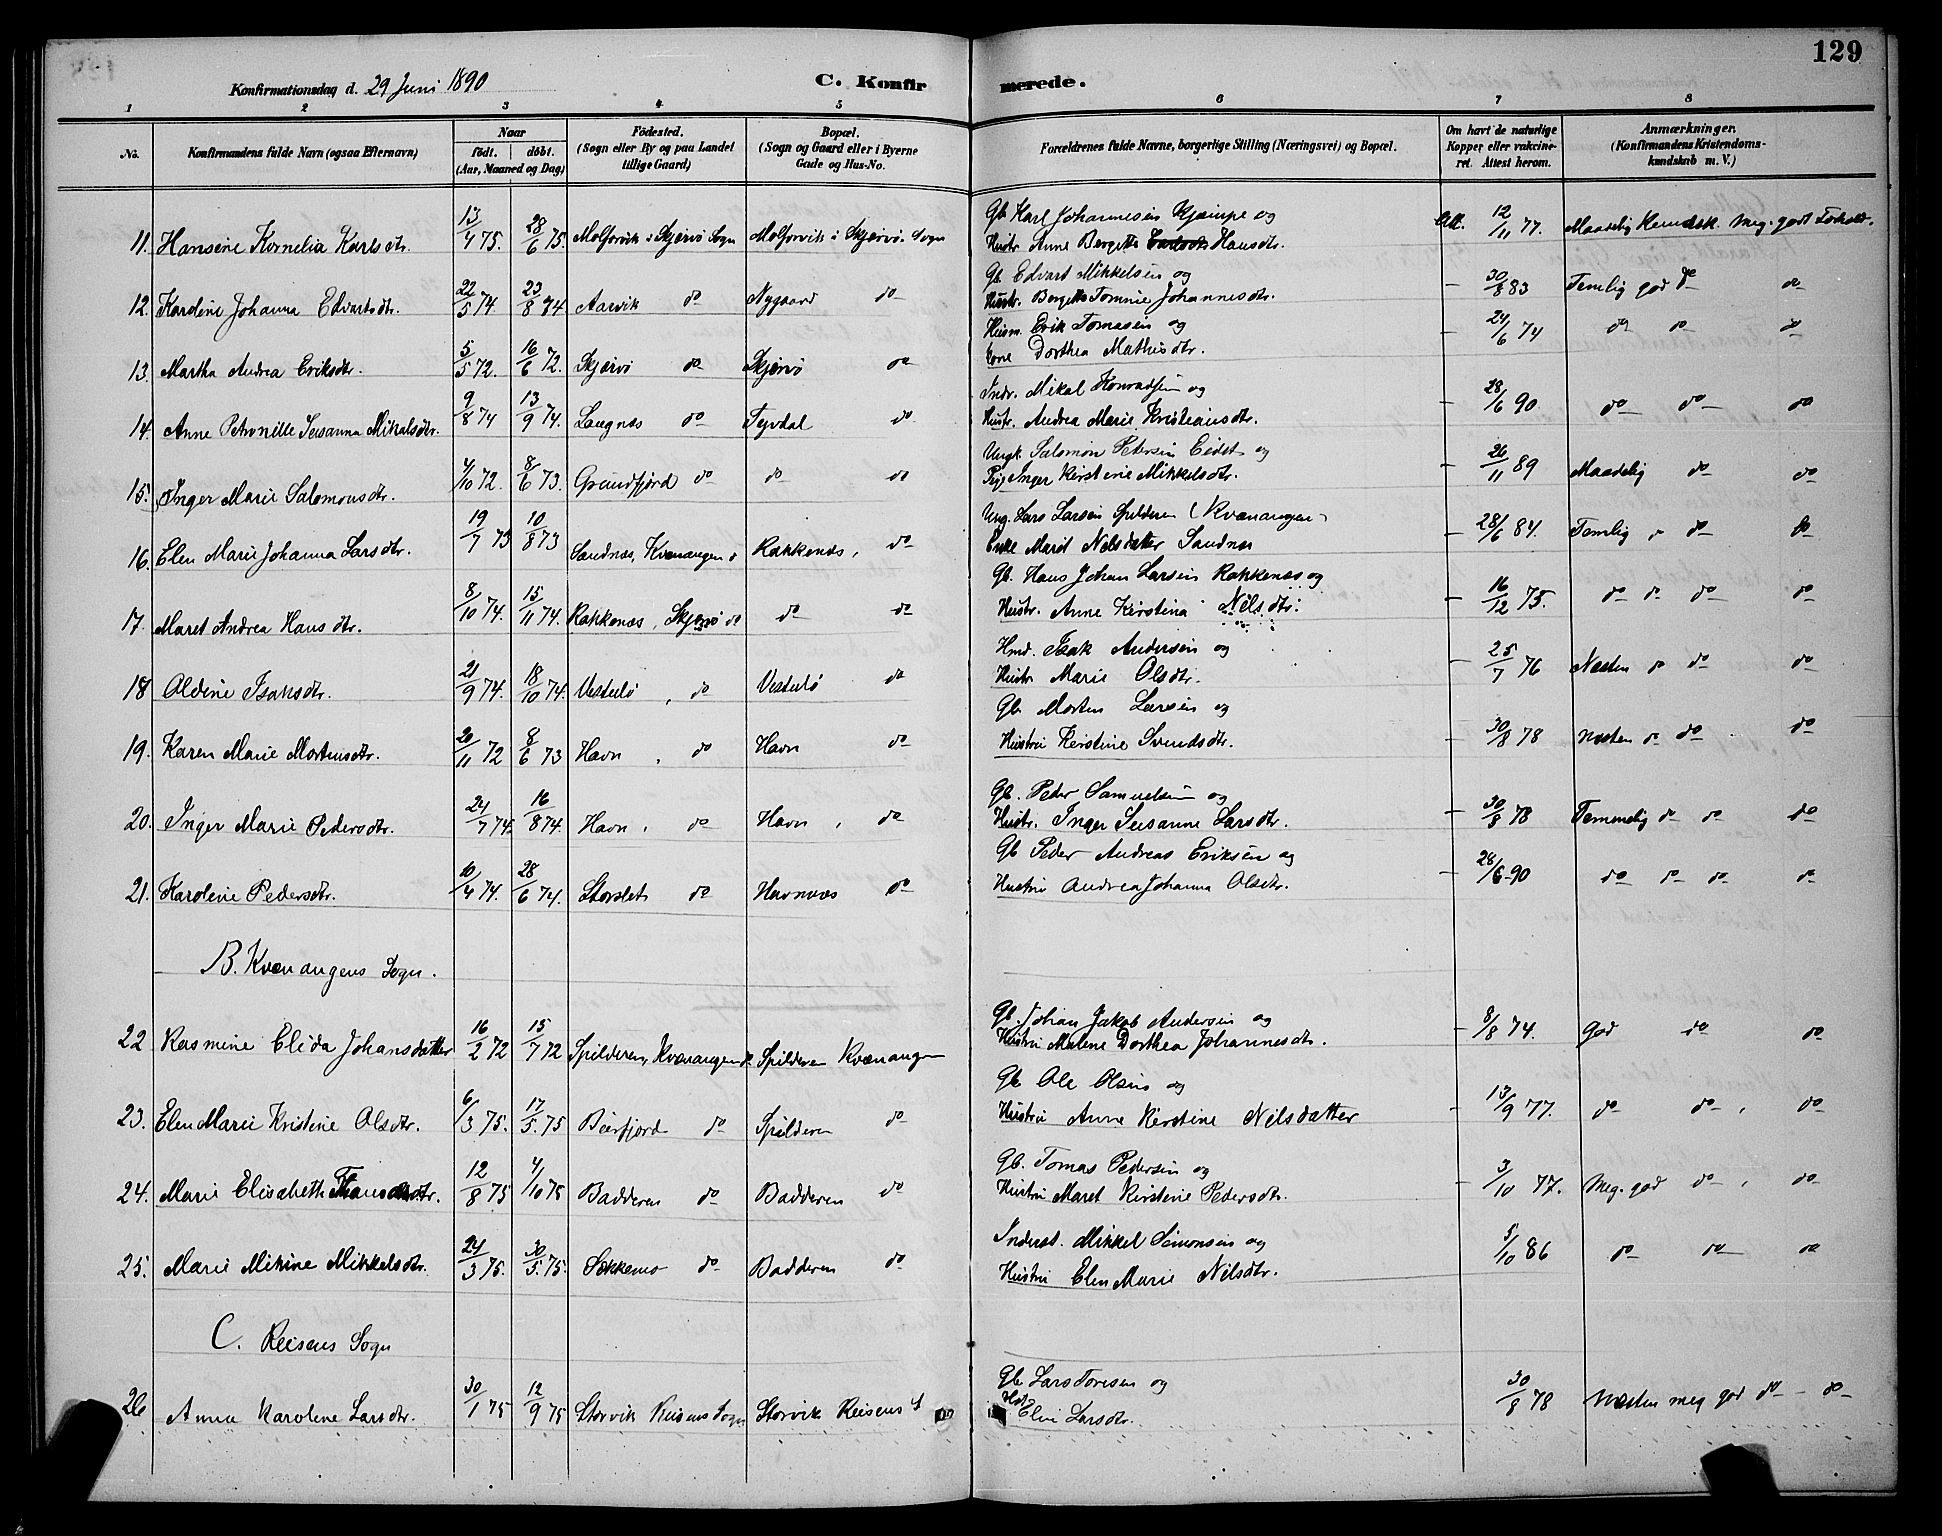 129
Konfirmationsdag d. 29 Juni 1890 C. Konfirmerede.
1 2 3 4 5 6 7 8
No. Konfirmandens fulde Navn (ogsaa Efternavn) Naar födt. döbt. (Aar, Maaned og Dag) Födested. (Sogn eller By og paa Landet tillige Gaard) Bopæl. (Sogn og Gaard eller i Byerne Gade og Hus-No. Forældrenes fulde Navne, borgerlige Stilling (Næringsvei) og Bopæl. Om havt de naturlige Kopper eller vakcineret. Attest herom. Anmærkninger. (Konfirmandens Kristendomskundskab m. V.)
Gb. Karl Johannesen Kjæmpe og
11. Hansine Kornelia Karlsdtr. 13/4 75. 28/6 75. Molforvik i Skjervö Sogn Molforvik i Skjervö Sogn Hustr. Anne Bergette Hansdtr. Att. 12/11 77. Maadelig Kundsk. meg. godt Forhold.
Gb. Edvart Mikkelsen og
12. Kardine Johanna Edvartsdtr. 22/5 74. 23/8 74 Aarvik do Nygaard do Hustr. Bergette Tomine Johannesdtr. - 30/8 83 Temlig god do do
Husm. Erik Tomasen og
13. Martha Andrea Eriksdtr. 5/5 72. 16/6 72. Skjervö do Skjervö do Kone Dorthea Mathisdtr. - 24/6 74 do do do
Indr. Mikal Konradsen og
14. Anne Petronille Susanna Mikalsdtr. 9/8 74 13/9 74. Laugnæs do Tejvdal do Hustr. Andrea Marie Kristiansdtr. - 28/6 90 do do do
Ungk. Salomon Petersen Eidet og
15. Inger Marie Salomonsdtr. 4/10 72. 8/6 73. Grundfjord do do do Pige Inger Kirstine Mikkelsdtr. - 26/11 89 Maadelig do do
Ung. Lars Larsen Spilderen (Kvænangen)
16. Elen Marie Johanna Larsdtr. 19/7 73 10/8 73 Sandnæs, Kvænangen s Rakkenæs, do Enke Marit Nilsdatter Sandnæs - 28/6 84. Temlig do do
Gb. Hans Johan Larsen Rakkenæs og
17. Maret Andrea Hansdtr. 8/10 74. 15/11 74. Rakkenæs, Skjervö do do do Hustr. Anne Kirstina Nilsdtr. - 16/12 75. do do do do
Hmd. Isak Andersen og
18 Aldine Isaksdtr. 21/9 74. 18/10 74. Vesterlö, do Vesterlö do Hustr. Marie Olsdtr. - 25/7 76 Næsten do do do
Gb. Morten Larsen og
19. Karen Marie Mortensdtr. 20/11 72 8/6 73 Havn, do Havn do Hustru Kerstine Svendsdtr. - 30/8 78 Næsten do do do
Gb. Peder Samuelsen og
20. Inger Marie Pedersdtr. 24/7 74. 16/8 74. Havn, do Havn, do Hustr. Inger Susanne Larsdtr. - 30/8 78 Temmelig do do do
Gb Peder Andreas Eriksen og
21. Karoline Pedersdtr. 10/4 74. 28/6 74. Storslet do Havnnæs do Hustru Andrea Johanna Olsdtr. - 28/6-90 do do do do
B. Kvænangens Sogn.
Gb. Johan Jakob Andersen og
22 Rasmine Elida Johansdatter 16/2 72 15/7 72 Spilderen, Kvænangen Spilderen Kvænangen Hustru Malene Dorthea Johannesdtr. - 8/8 74. god do do
Gb Ole Olsen og
23. Elen Marie Kristine Olsdtr. 6/3 75. 17/5. 75 Burfjord do Spilderen do Hustru Anne Kerstine Nilsdatter - 13/9 77. do do, do
Gb. Tomas Pedersen og
24. Marie Elisabeth 12/8 75 4/10 75 Badderen do Badderen do Hustru Maret Kirstine Pedersdtr. - 3/10 77. Meg. god do, do
Inderst. Mikkel Simonsen og
25. Marie Mikine Mikkelsdtr. 24/3 75. 30/5. 75. Sekkemo do Badderen do Hustru Elen Marie Nilsdtr. 5/10 86 do do do
C. Reisens Sogn
Gb Lars Toresen og
26 Anna Karoline Larsdtr. 30/1 75 12/9 75 Storvik Reisens Sogn Storvik Reisens S Hst. Elen Larsdtr. 30/8 78 Næsten meg god do - do